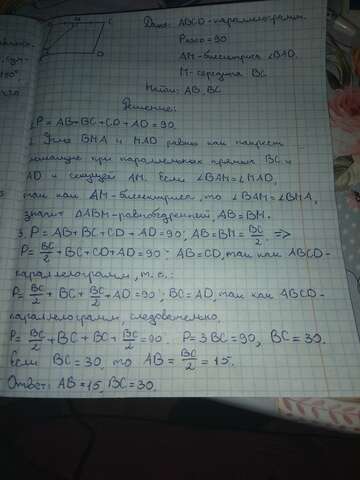 M
C
D
Дано: ABCD-параллелограмм.
P ABCD = 90
AM-биссектриса ∠BAD.
M-середина BC
Найти: AB, BC
Решение:
1. P = AB+BC+CD+AD=90.
2. Углы BMA и MAD равны как накрест
лежащие при параллельных прямых BC и
AD и секущей AM. Если ∠BAM=∠MAD,
так как AM-биссектриса, то ∠BAM=∠BMA,
значит △ABM-равнобедренный, AB=BM.
3. P = AB+BC+CD+AD=90; AB=BM=BC/2. =>
P = BC/2 + BC+CD+AD=90; AB=CD, так как ABCD-
параллелограмм, т. е.:
P= BC/2 + BC + BC/2 + AD=90; BC=AD, так как ABCD-
параллелограмм, следовательно,
P= BC/2 + BC + BC + BC/2 = 90. P=3BC=90, BC=30.
Если BC=30, то AB = BC/2 = 15.
Ответ: AB=15, BC=30.